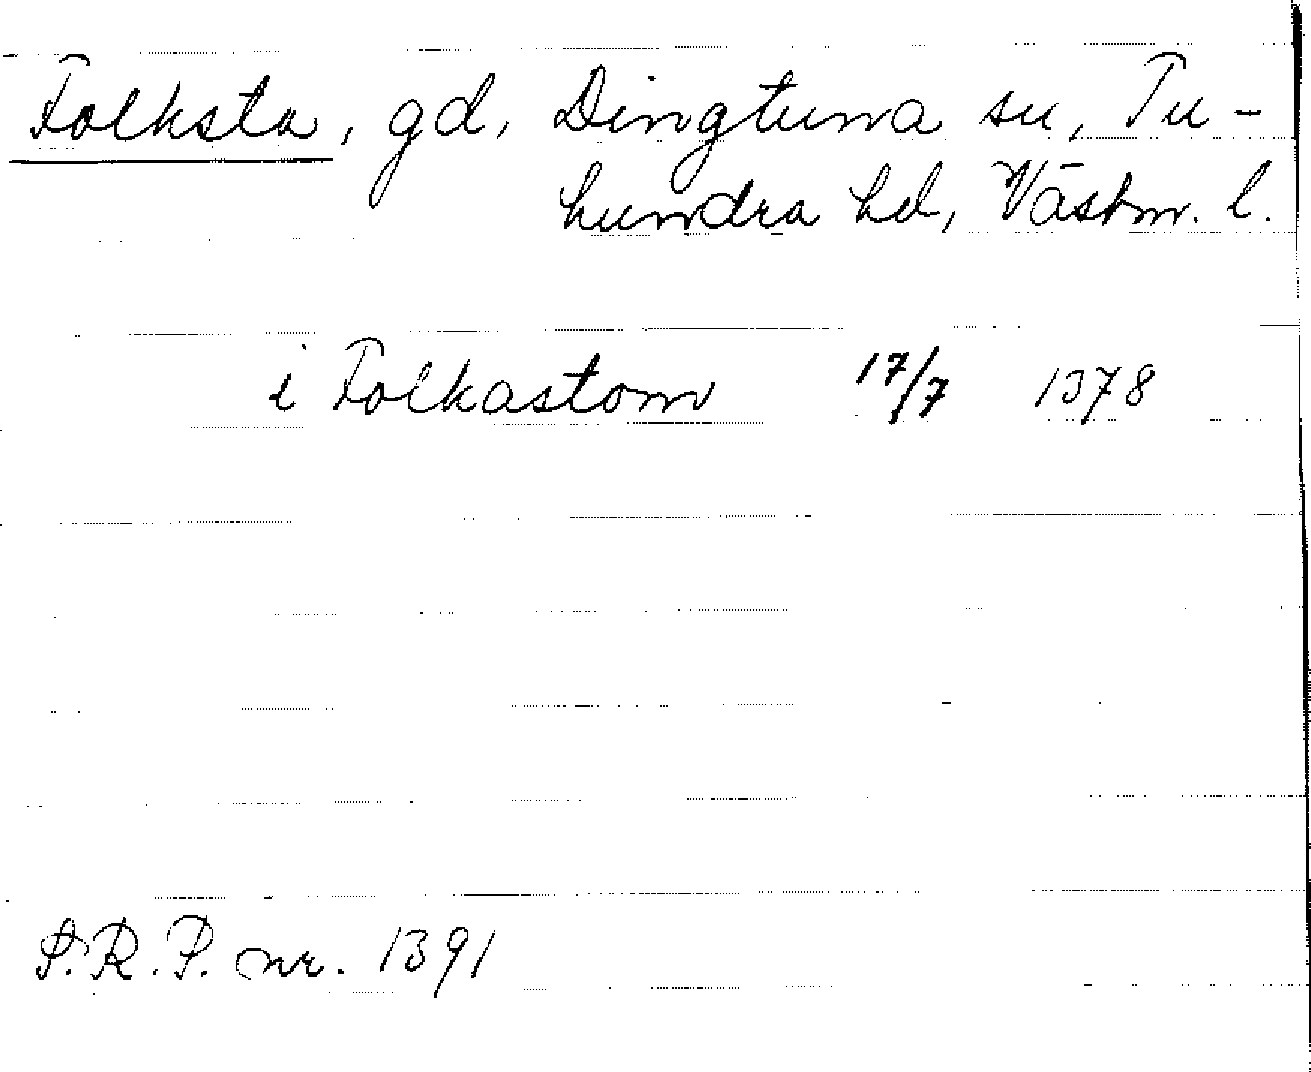 Folksta, gd, Dingtuna sn, Tu-
hundra hd, Västm. l.
i Folkastom 17/7 1378
S.R.P. nr. 1391